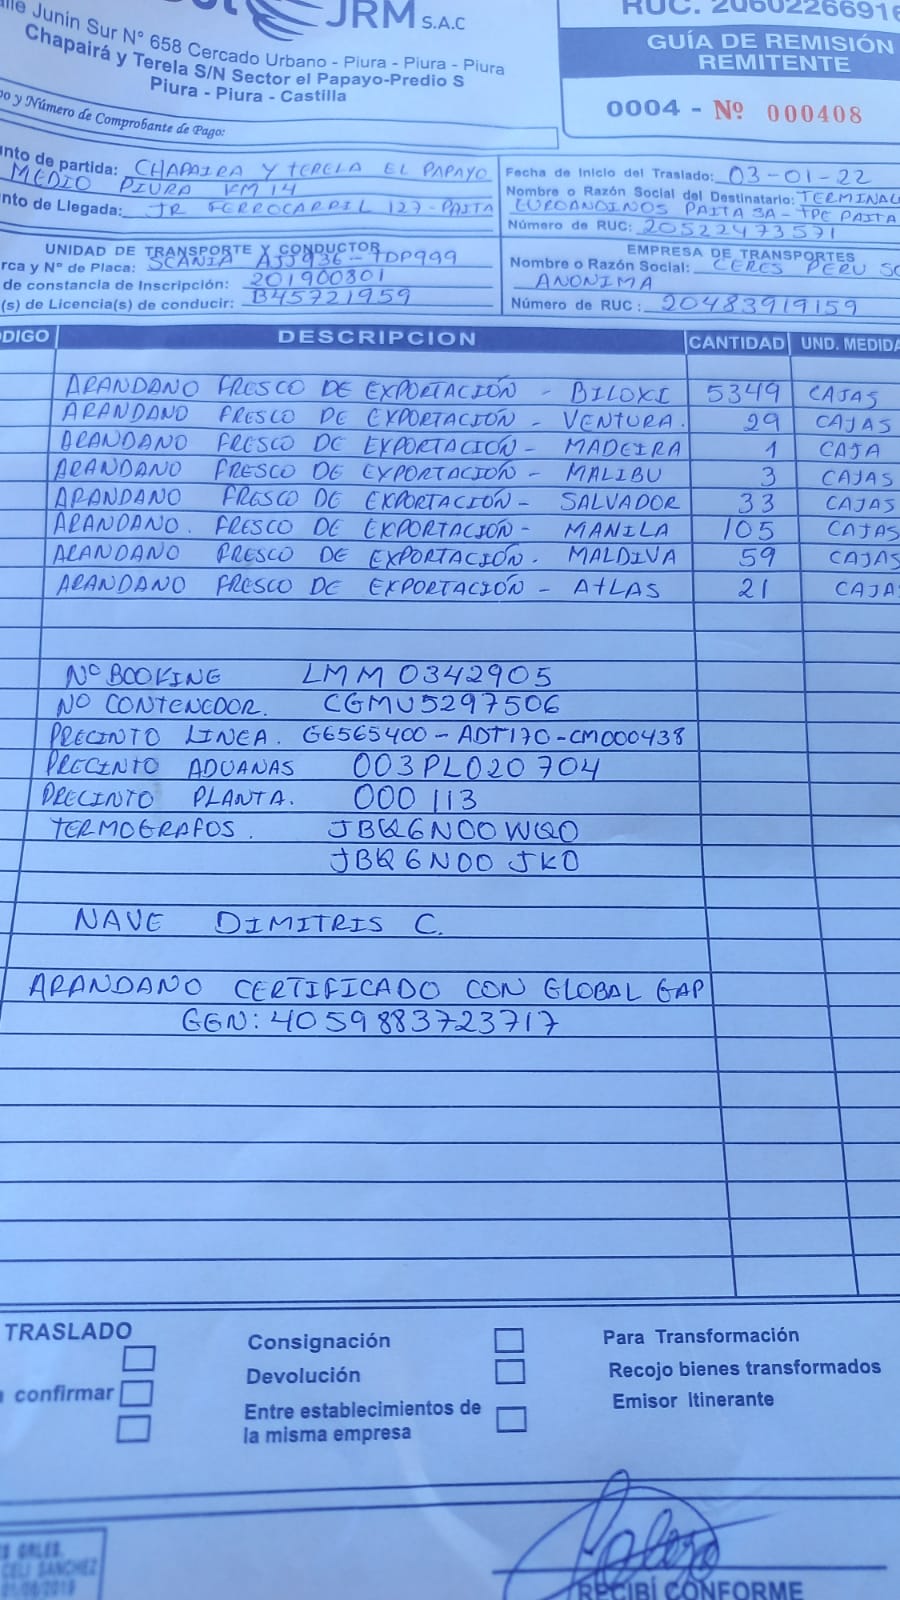 JRM S.A.C
RUC. 20602266916
lle Junín Sur N° 658 Cercado Urbano - Piura - Piura - Piura
Chapairá y Terela S/N Sector el Papayo-Predio S
Piura - Piura - Castilla
GUÍA DE REMISIÓN
REMITENTE
0004 - Nº 000408
po y Número de Comprobante de Pago:
nto de partida: CHAPAIRA Y TERELA EL PAPAYO
MEDIO PIURA KM 14
nto de Llegada: JR FERROCARRIL 127-PAITA
Fecha de Inicio del Traslado: 03-01-22
Nombre o Razón Social del Destinatario: TERMINAL
EUROANDINOS PAITA SA - TPE PAITA
Número de RUC: 20522473571
UNIDAD DE TRANSPORTE Y CONDUCTOR
rca y N° de Placa: SCANIA AJJ936 - TDP999
de constancia de Inscripción: 201900801
(s) de Licencia(s) de conducir: B45721959
EMPRESA DE TRANSPORTES
Nombre o Razón Social: CERES PERU SO
ANONIMA
Número de RUC: 20483919159
ODIGO DESCRIPCION CANTIDAD UND. MEDIDA
ARANDANO FRESCO DE EXPORTACIÓN - BILOXI 5349 CAJAS
ARANDANO FRESCO DE EXPORTACIÓN - VENTURA. 29 CAJAS
ARANDANO FRESCO DE EXPORTACIÓN - MADEIRA 1 CAJA
ARANDANO FRESCO DE EXPORTACIÓN - MALIBU 3 CAJAS
ARANDANO FRESCO DE EXPORTACIÓN - SALVADOR 33 CAJAS
ARANDANO. FRESCO DE EXPORTACIÓN - MANILA 105 CAJAS
ARANDANO FRESCO DE EXPORTACIÓN. MALDIVA 59 CAJAS
ARANDANO FRESCO DE EXPORTACIÓN - ATLAS 21 CAJA
Nº BOOKING LMM0342905
NO CONTENEDOR. CGMU5297506
PRECINTO LINEA. G6565400-ADT170-CM000438
PRECINTO ADUANAS 003PL020704
PRECINTO PLANTA. 000113
TERMOGRAFOS. JBQ6N00WQ0
JBQ6N00JK0
NAVE DIMITRIS C.
ARANDANO CERTIFICADO CON GLOBAL GAP
GGN: 4059883723717
TRASLADO
Consignación
Para Transformación
Devolución
Recojo bienes transformados
a confirmar
Entre establecimientos de
la misma empresa
Emisor Itinerante
S GRLES.
CELI SANCHEZ
01/06/2019
RECIBÍ CONFORME